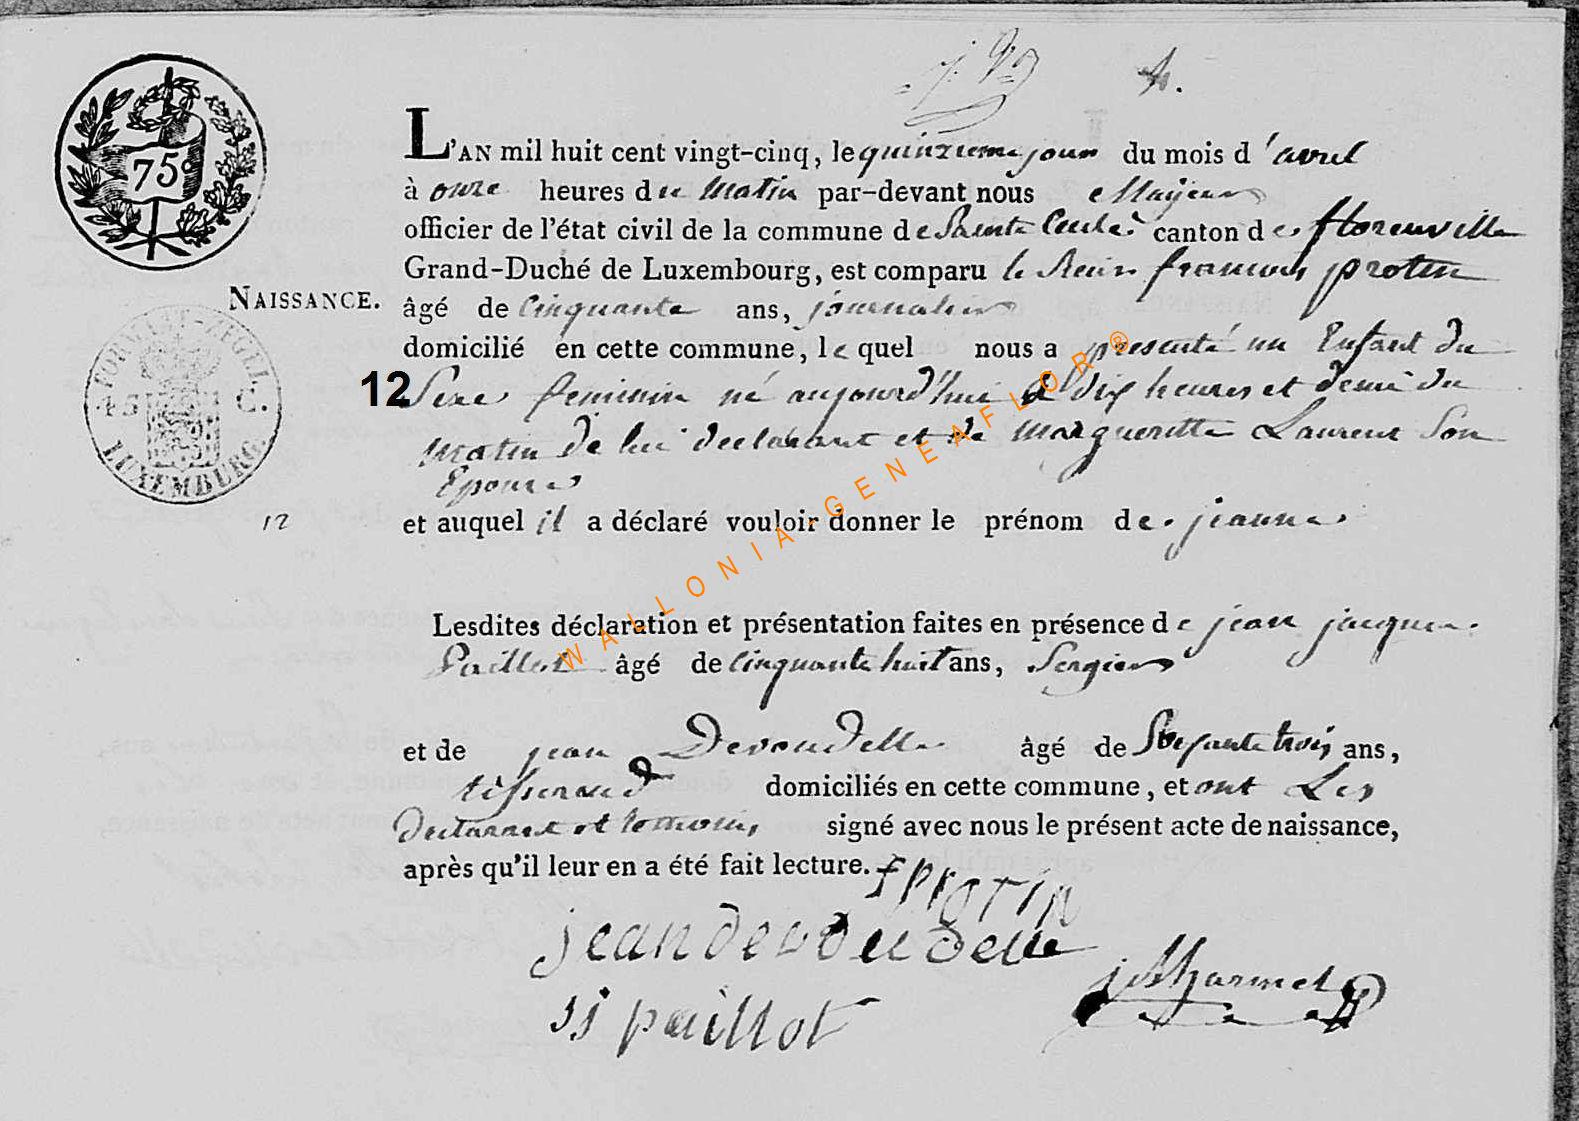 75 c
L'AN mil huit cent vingt-cinq, le quinzieme jour du mois d'avril
à onze heures du Matin par-devant nous Mayeur
officier de l'état civil de la commune de Sainte Cecile canton de florenville
Grand-Duché de Luxembourg, est comparu le Sieur francois protin
NAISSANCE.
âgé de Cinquante ans, journalier
domicilié en cette commune, lequel nous a presenté un Enfant du
12 Sexe feminin né aujourd'hui a dix heures et demi du
matin de lui declarant et de Margueritte Laurent Son
Epouse
FORMAET-ZEGEL.
45 C.
LUXEMBURG.
12
et auquel il a déclaré vouloir donner le prénom de jeanne
Lesdites déclaration et présentation faites en présence de jean jacques
Paillot âgé de Cinquante huit ans, Sergier
et de jean Devoudelle âgé de Soixante trois ans,
tisserand domiciliés en cette commune, et ont Les
Declarant et temoins signé avec nous le présent acte de naissance,
après qu'il leur en a été fait lecture. f protin
jean devoudelle
jj paillot
Harmel
WALLONIA-GENEAFLOR®